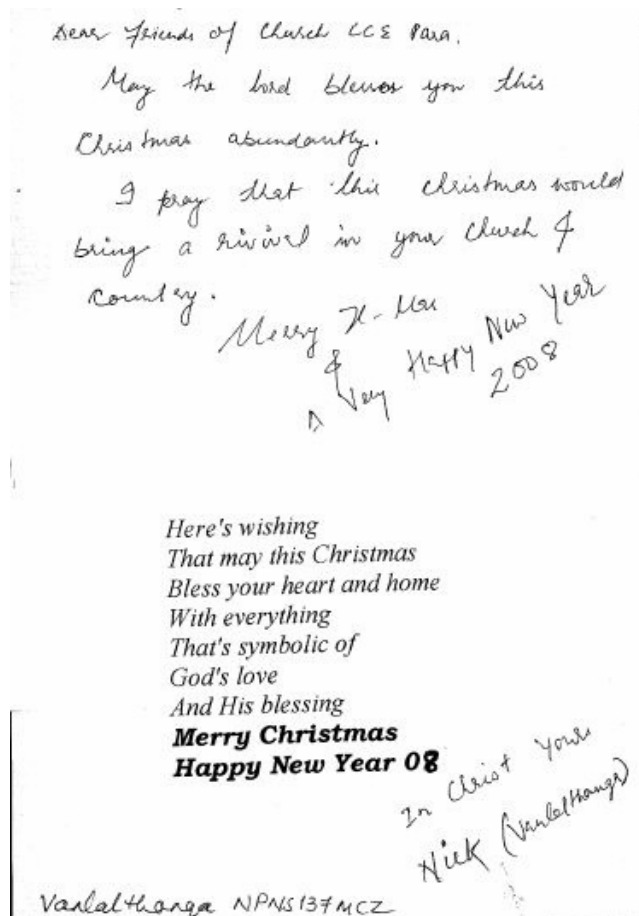 Dear Friends of Church LCE Para.
May the lord blesses you this
Christmas abundantly.
I pray that this christmas would
bring a rivival in your Church &
country.
Merry X-Mas
&
A Very Happy New Year
2008
Here's wishing
That may this Christmas
Bless your heart and home
With everything
That's symbolic of
God's love
And His blessing
Merry Christmas
Happy New Year 08
In Christ Yours
(Vanlalthanga)
Vanlalthanga NPNS137MCZ